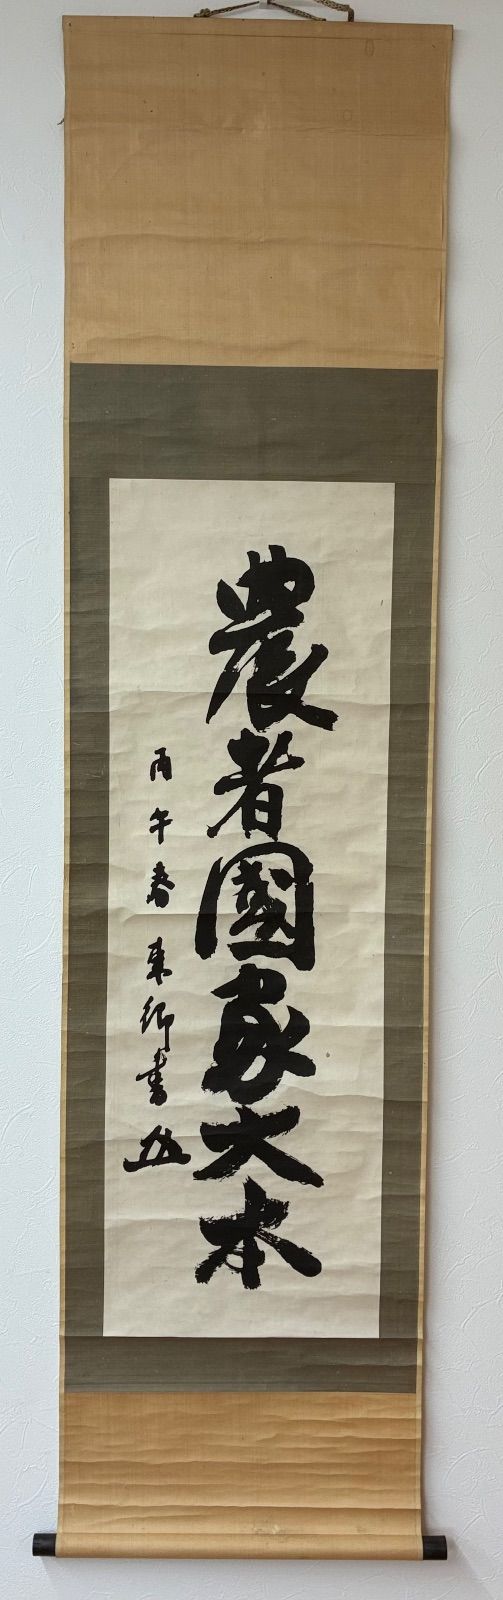 農者國家大本
丙午春東郷書